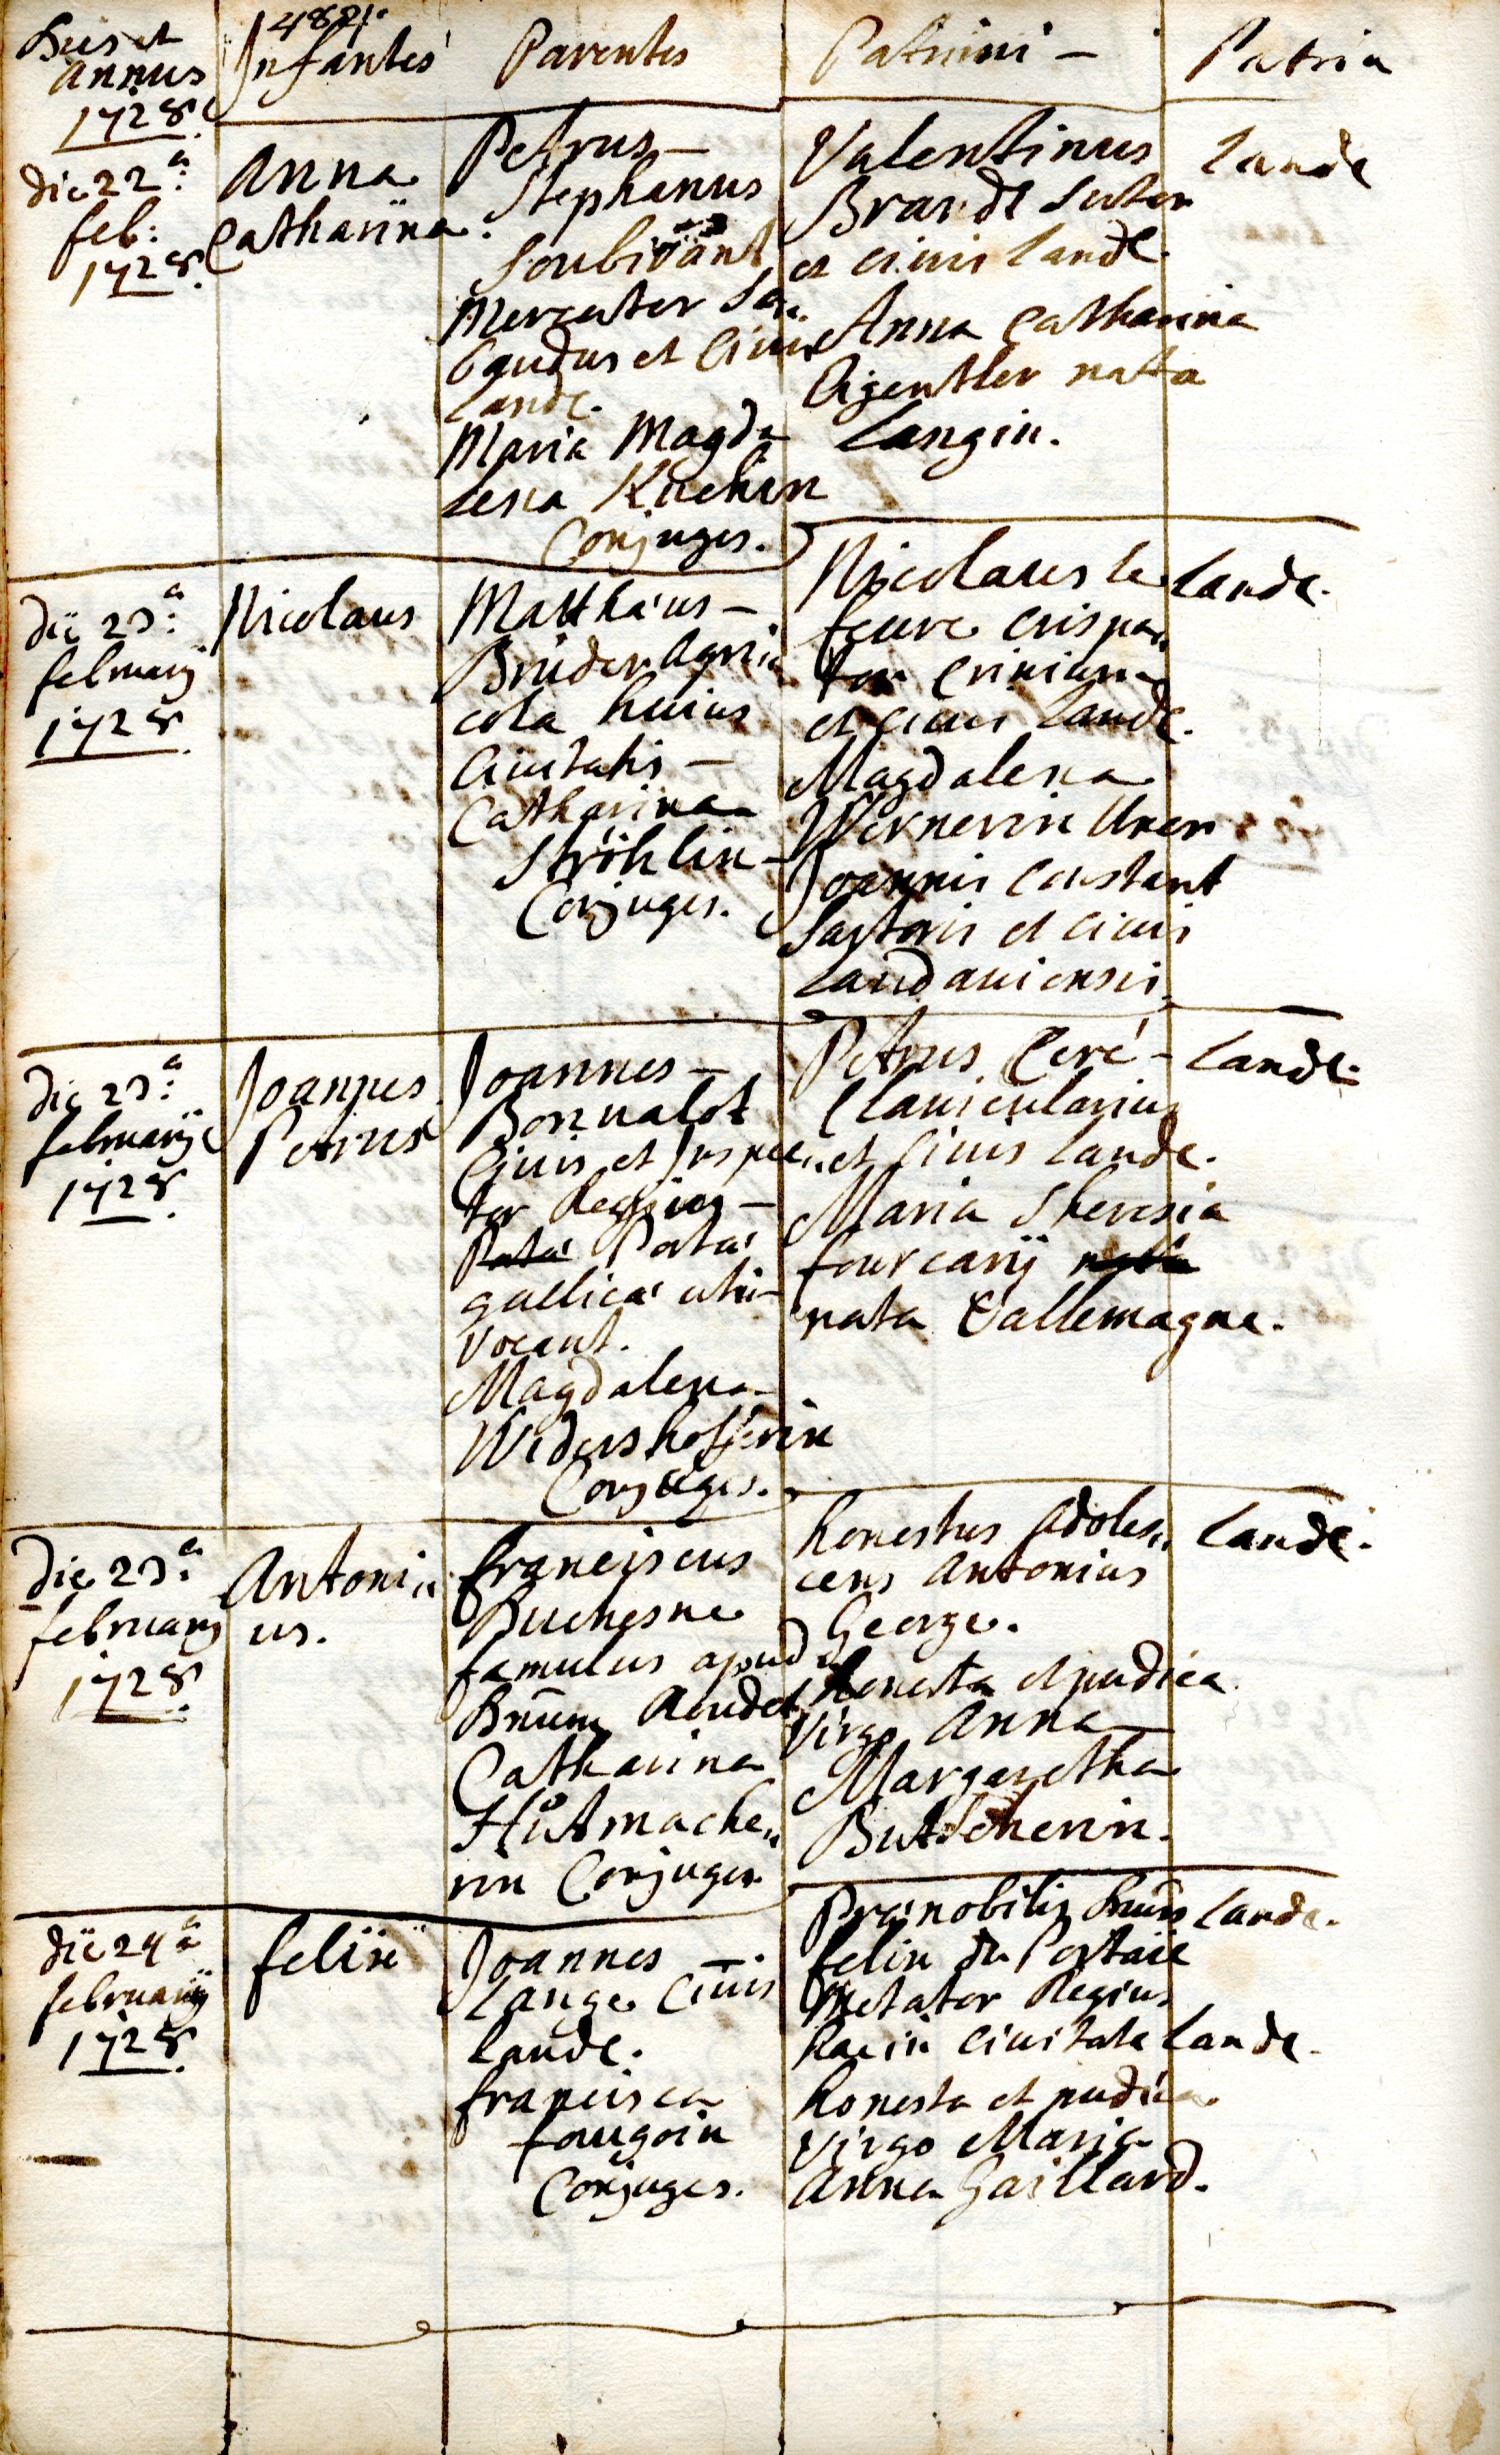 Dies et
annus
1728.
4821.
Infantes
Parentes
Patrini —
Patria
die 22ª
feb:
1728.
Anna
Catharina.
Petrus —
Stephanus
Soubirant
Mercator Sa,,
baudus et Civis
Landè.
Maria Magda
lena Kuchin
Conjuges.
Valentinus
Brandt Sutor
et civis Landè.
Anna Catharina
Eigentler nata
Langin.
Landè
die 23ª
february
1728.
Nicolaus
Matthæus —
Bruder Agri
cola huius
Civitatis —
Catharina
Ströhlin —
Conjuges.
Nicolaus le
feure crispa,,
tor crinium
et civis Landè.
Magdalena
Wernerin Uxor
Joannis Constant
Sartoris et civis
Landaviensis
Landè.
die 23ª
february
1728.
Joannes
Petrus
Joannes —
Bonnalot
Civis et Inspec,,
tor Regius —
Portæ
gallicæ uti
vocant.
Magdalena
Widershofferin
Conjuges.
Petrus Ceré —
Clavicularius
et Civis Landè.
Maria Theresia
fourcarÿ
nata Dallemagne.
Landè.
Die 23ª
february
1728.
Antoni,,
us.
franciscus
Duchesne
famulus apud
Dnum Rendet
Catharina
Hůtmache,,
rin Conjuges
honestus Adoles,,
cens Antonius
George.
honesta et pudica
Virgo Anna
Margaretha
Butscherin.
Landè.
die 24ª
february
1728.
felix
Joannes —
Lange Civis
Landè.
francisca
fougoin
Conjuges.
Prænobilis Dnus
felix du Portaie
Metator Regius
hac in civitate Landè.
honesta et pudica
Virgo Maria
Anna Gaillard.
Landè.